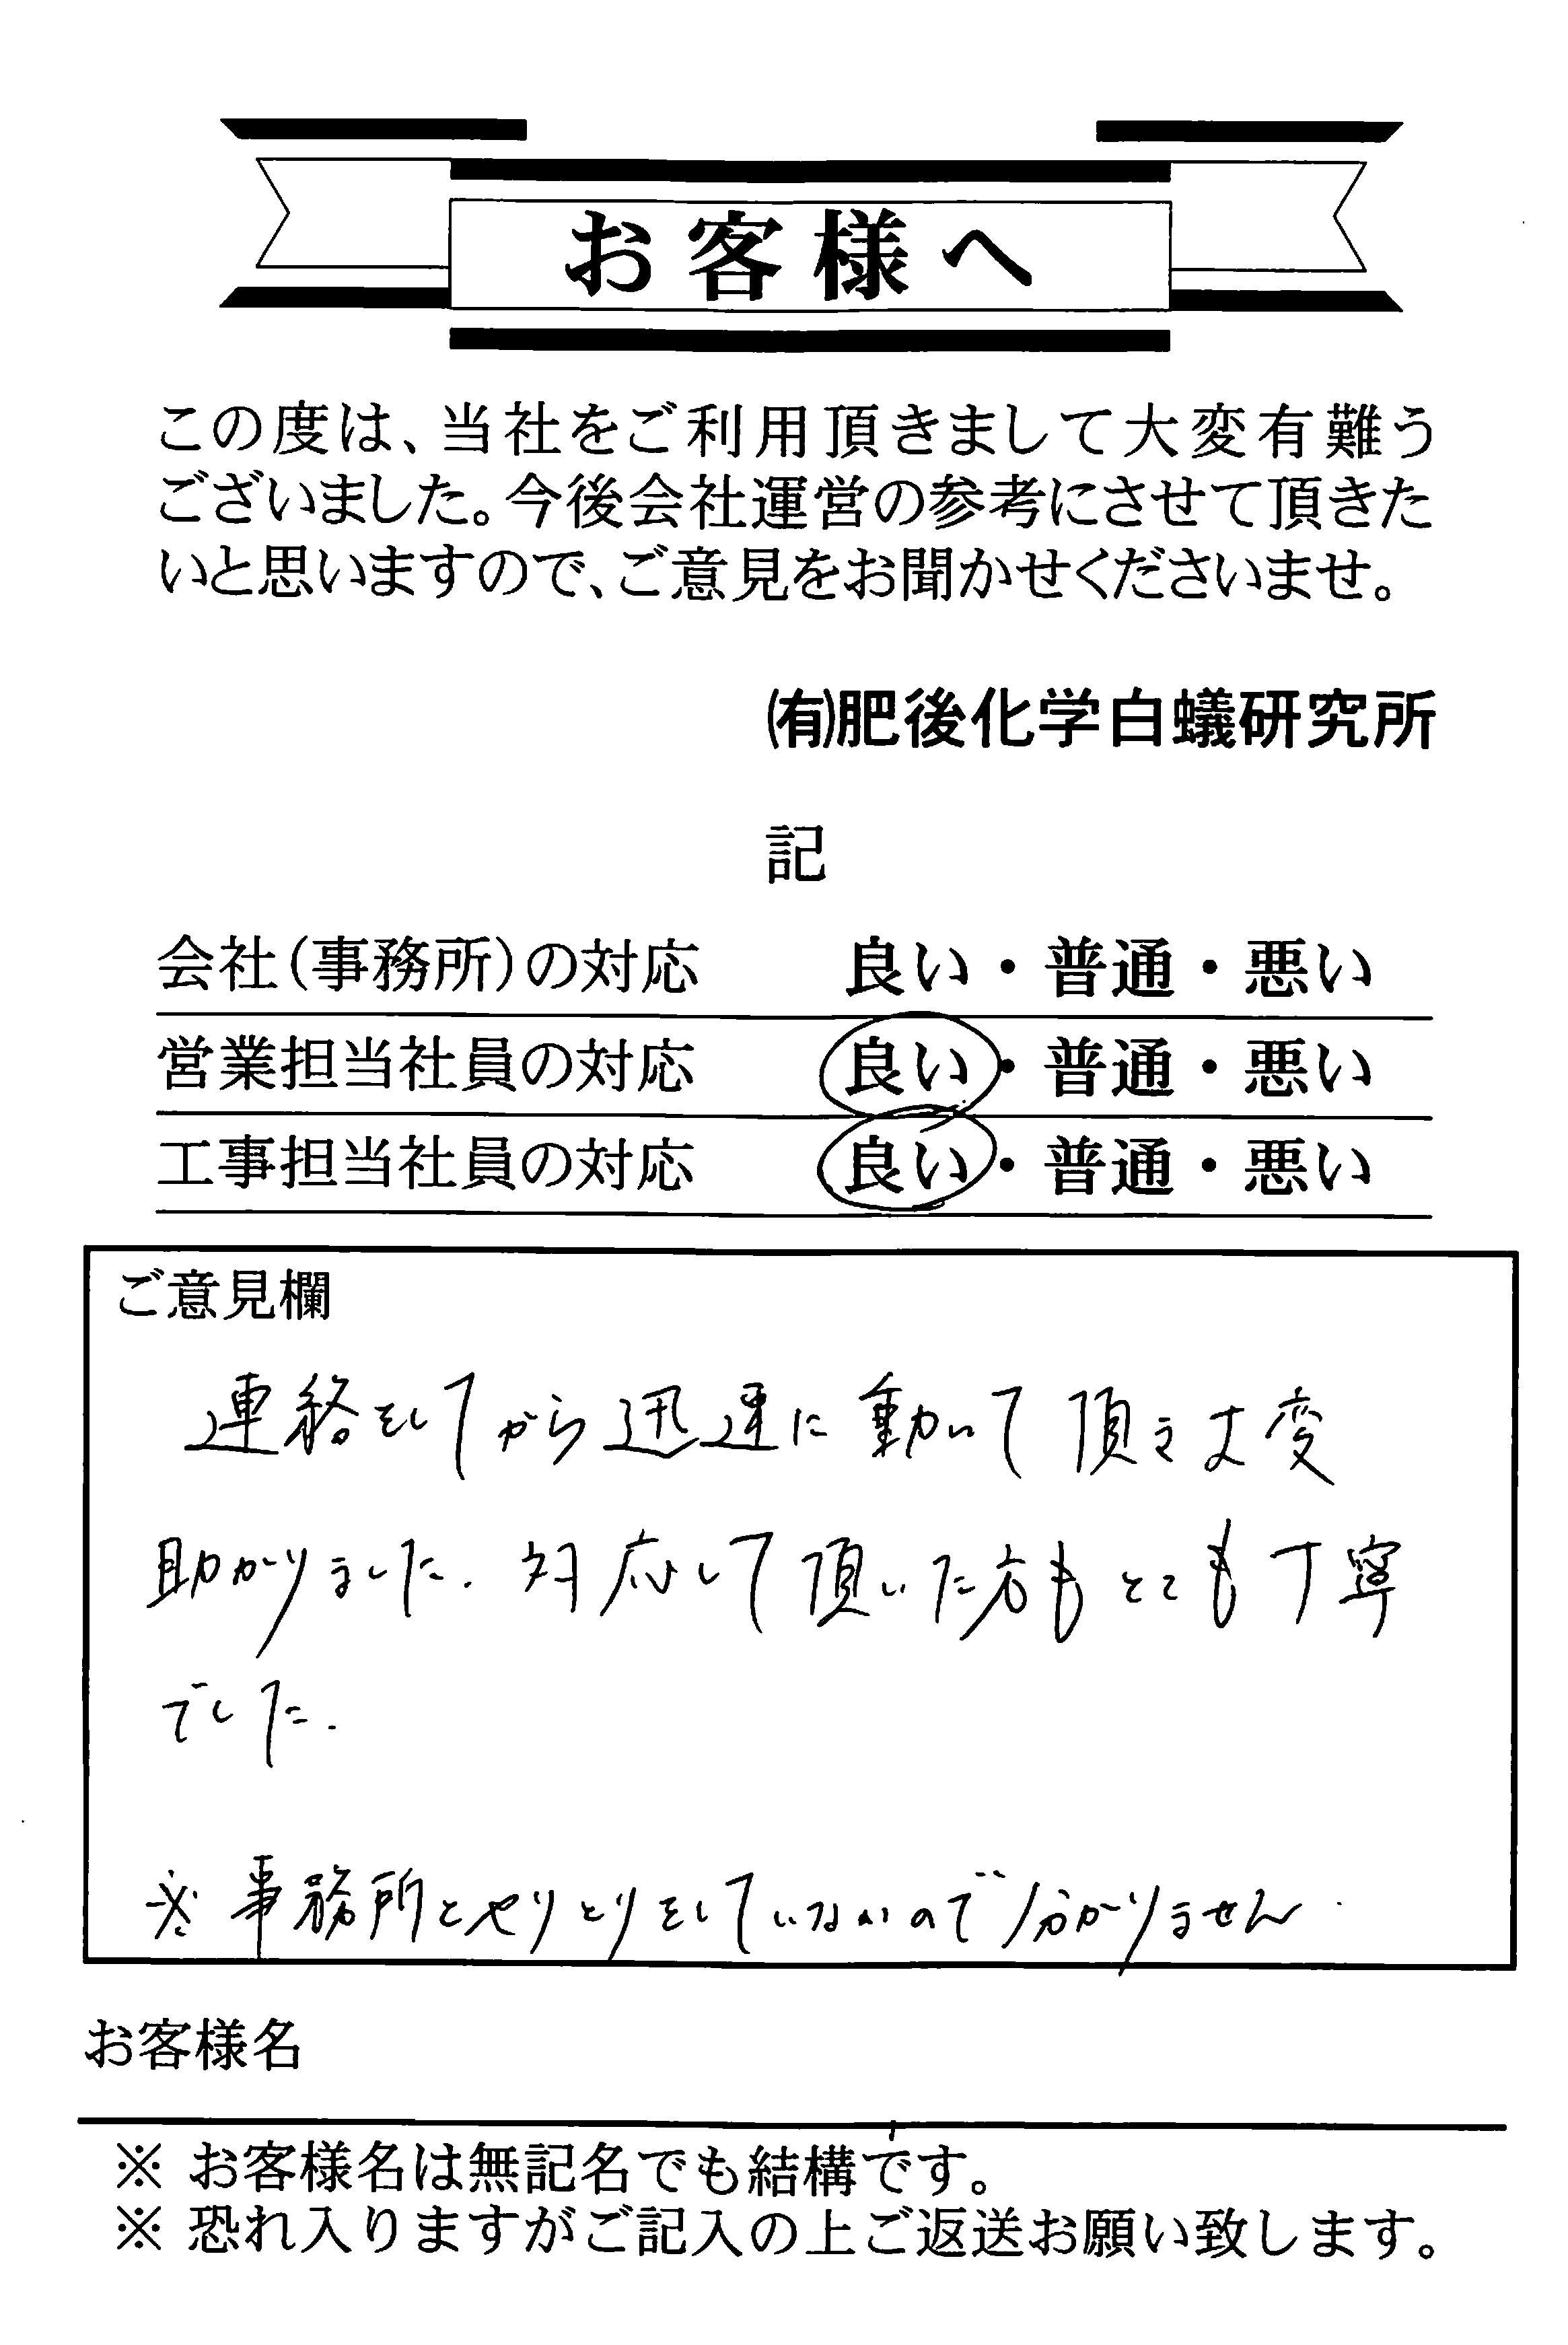 お客様へ
この度は、当社をご利用頂きまして大変有難う
ございました。今後会社運営の参考にさせて頂きた
いと思いますので、ご意見をお聞かせくださいませ。
㈲肥後化学白蟻研究所
記
会社(事務所)の対応 良い・普通・悪い
営業担当社員の対応 良い・普通・悪い
工事担当社員の対応 良い・普通・悪い
ご意見欄
連絡をしてから迅速に動いて頂き大変
助かりました. 対応して頂いた方もとても丁寧
でした.
※ 事務所とやりとりをしていないので分かりません.
お客様名
※ お客様名は無記名でも結構です。
※ 恐れ入りますがご記入の上ご返送お願い致します。